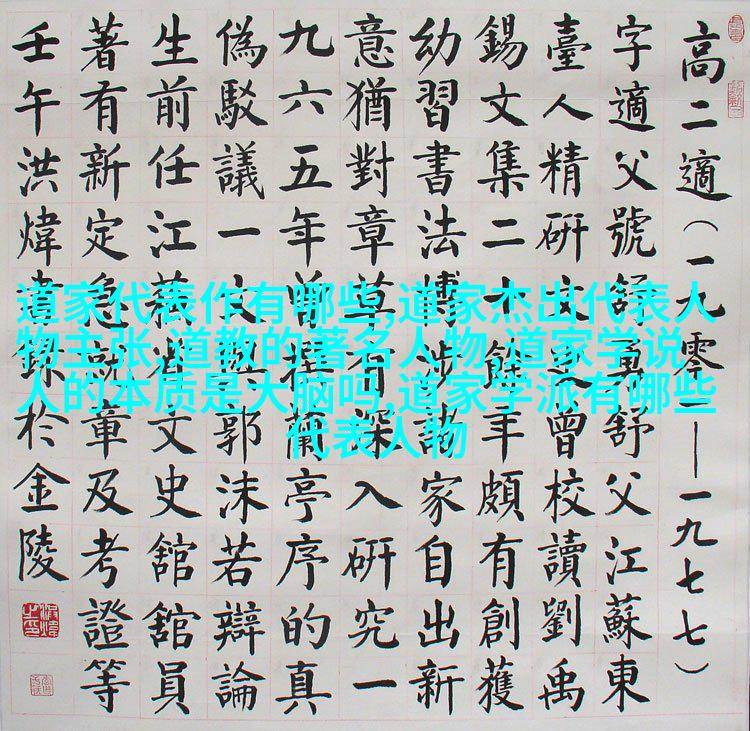 道家代表作有哪些,道家杰出代表人
物主张,道教的著名人物,道家学说
人的本质是大脑吗,道家学派有哪些
代表人物
高二適（一九零一——一九七七）
字適父號舒舒父江蘇東
臺人精研文史曾校讀劉禹
錫文集二十餘年頗有創獲
幼習書法博涉諸家自出新
意猶對章草有深入研究一
九六五年曾撰蘭亭序的真
偽駁議一文與郭沫若辯論
生前任江蘇省文史館館員
著有新定急就章及考證等
壬午洪煒書錄於金陵